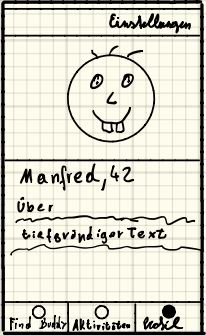 Einstellungen
Manfred, 42
Über
tiefgründiger Text
Find Buddy Aktivitäten Profil